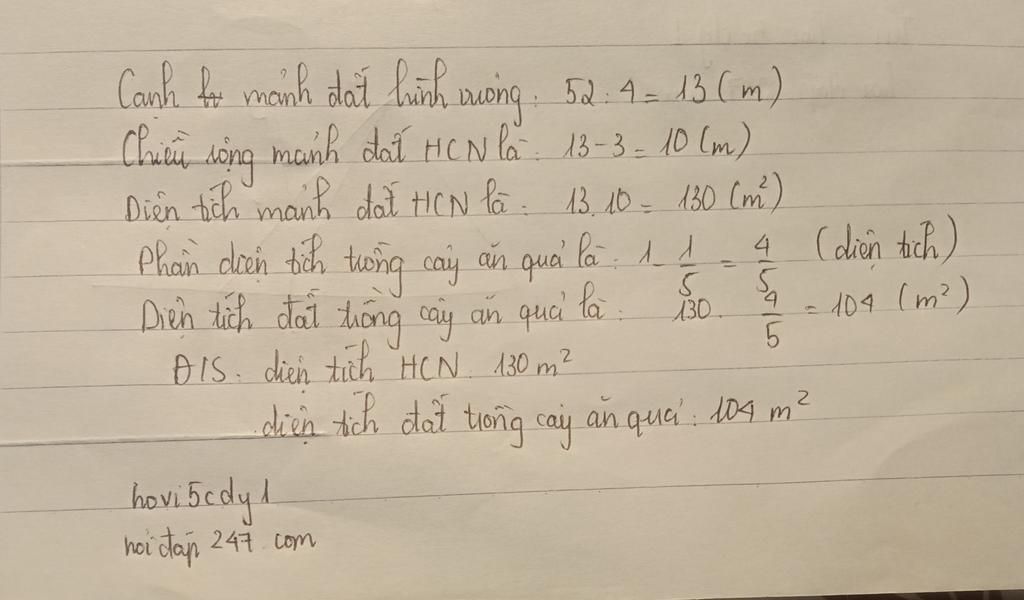 Cạnh mảnh đất hình vuông: 52 : 4 = 13 (m)
Chiều rộng mảnh đất HCN là: 13 - 3 = 10 (m)
Diện tích mảnh đất HCN là: 13.10 = 130 (m²)
Phần diện tích trồng cây ăn quả là: 1 - 1/5 = 4/5 (diện tích)
Diện tích đất trồng cây ăn quả là: 130. 4/5 = 104 (m²)
Đ/S: diện tích HCN: 130 m²
diện tích đất trồng cây ăn quả: 104 m²
hovi5cdy1
hoidap 247 com